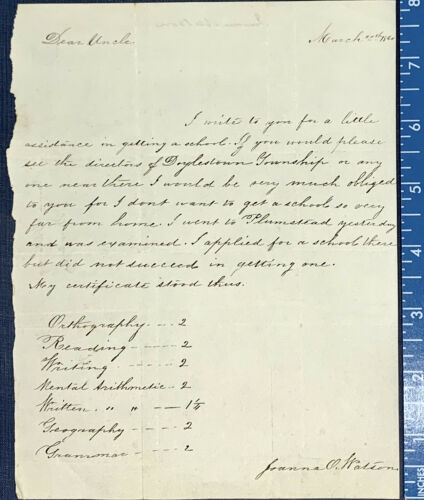 Dear Uncle March
I write to you for a little
assistance in getting a school. If you would please
see the directors of Doylestown Township or any
one near there I would be very much obliged
to you for I dont want to get a school so very
far from home. I went to Plumstead yesterday
and was examined. I applied for a school there
but did not succeed in getting one.
My certificate stood thus.
Orthography --- 2
Reading ----- 2
Writing ----- 2
Mental Arithmetic -- 2
Written " " --- 1
Geography ---- 2
Grammar ---- 2
Joanna O. Watson
8
7
6
5
4
3
2
1
INCHES